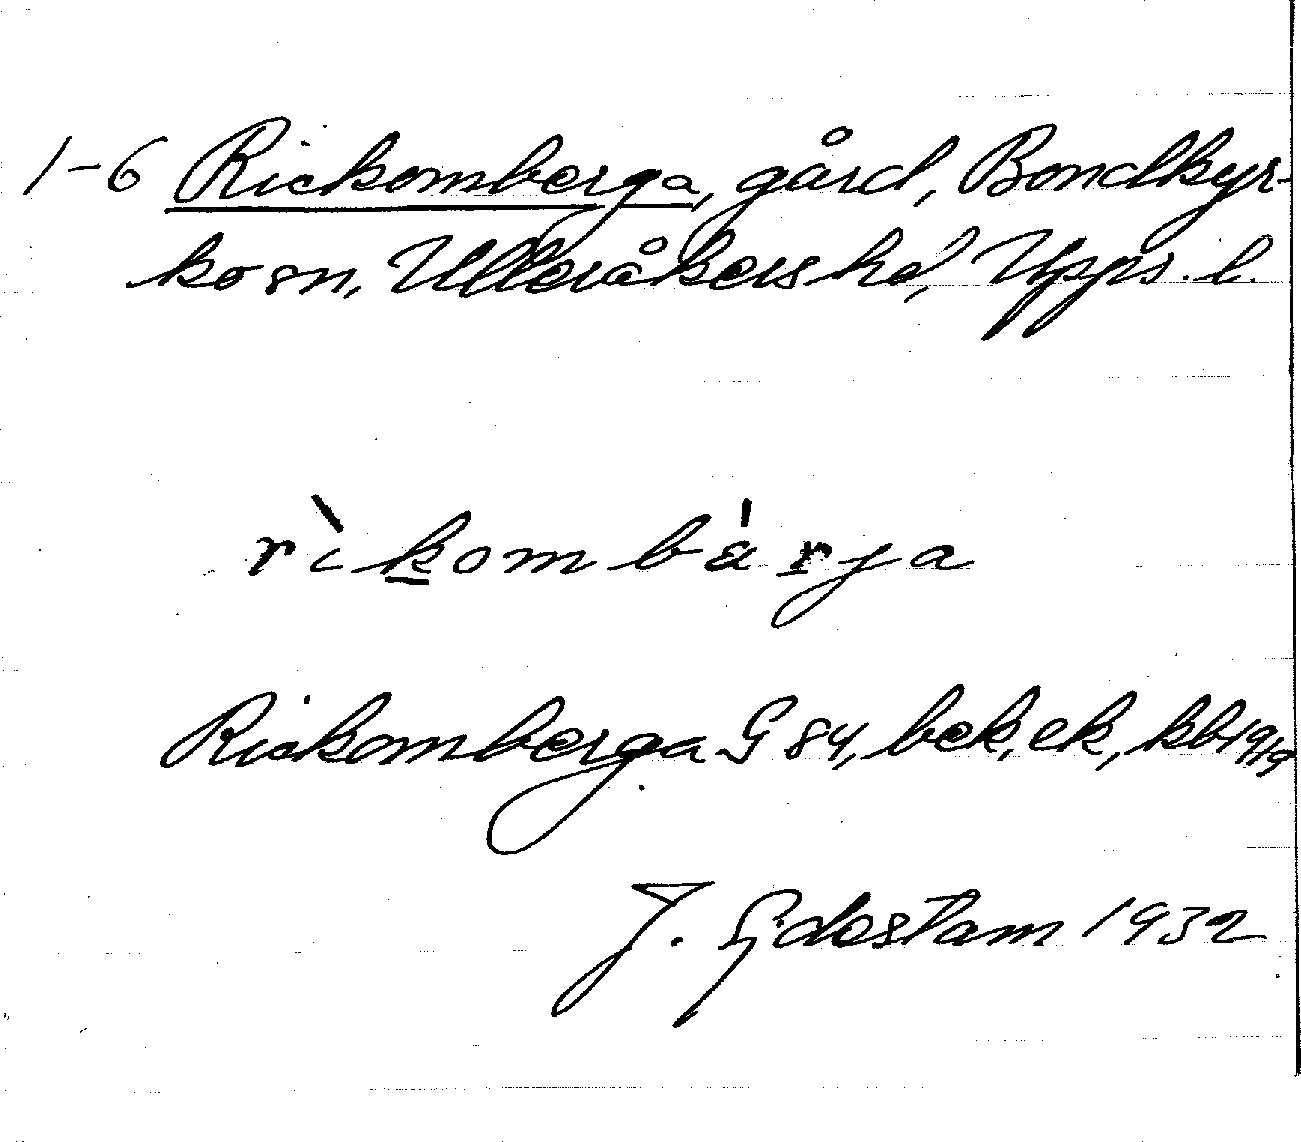 1-6 Rickomberga, gård, Bondkyr-
ko sn, Ulleråkers hd, Upps. l.
rìkombä́rja
Rickomberga G 84, bek, ek, kb 1919
J. Gjdestam 1932